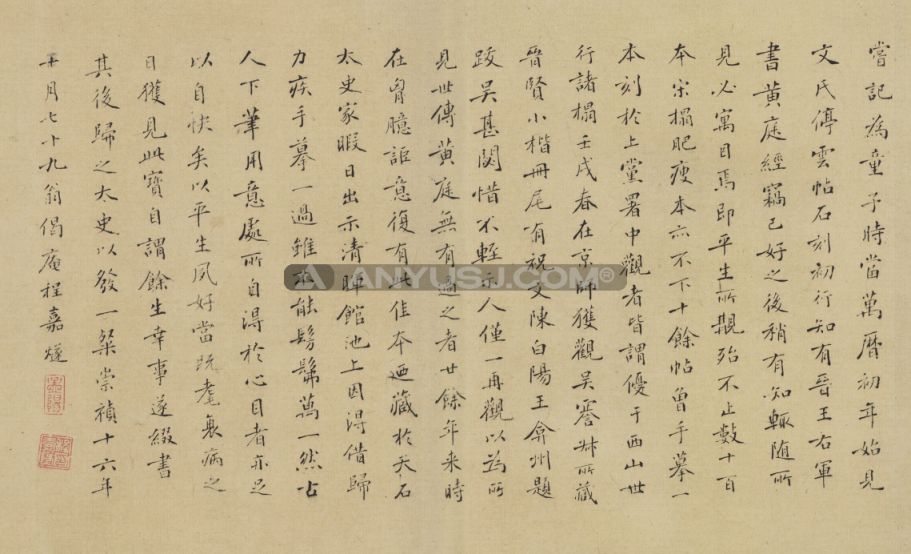 嘗記為童子時當萬曆初年始見
文氏停雲帖石刻初行知有晉王右軍
書黃庭經竊已好之後稍有知輒随所
見必寓目焉即平生所觀殆不止數十百
本宋搨肥瘦本亦不下十餘帖曾手摹一
本刻於上黨署中觀者皆謂優于西山世
行諸搨壬戌春在京師獲觀吳 所藏
晉賢小楷冊尾有祝文陳白陽王弇州題
跋吳甚閟惜不輕示人僅一再觀以為所
見世傳黃庭無有過之者廿餘年来時
在胷臆詎意復有此佳本迺藏於天石
太史家暇日出示清暉館池上因淂借歸
力疾手摹一過雖 能髣髴萬一然古
人下筆用意處所自淂於心目者亦足
以自快矣以平生夙好當既耄衰病之
日獲見此寶自謂餘生幸事遂綴書
其後歸之太史以發一粲崇禎十六年
五月七十九翁偈庵程嘉燧
ANYUSJ.COM®